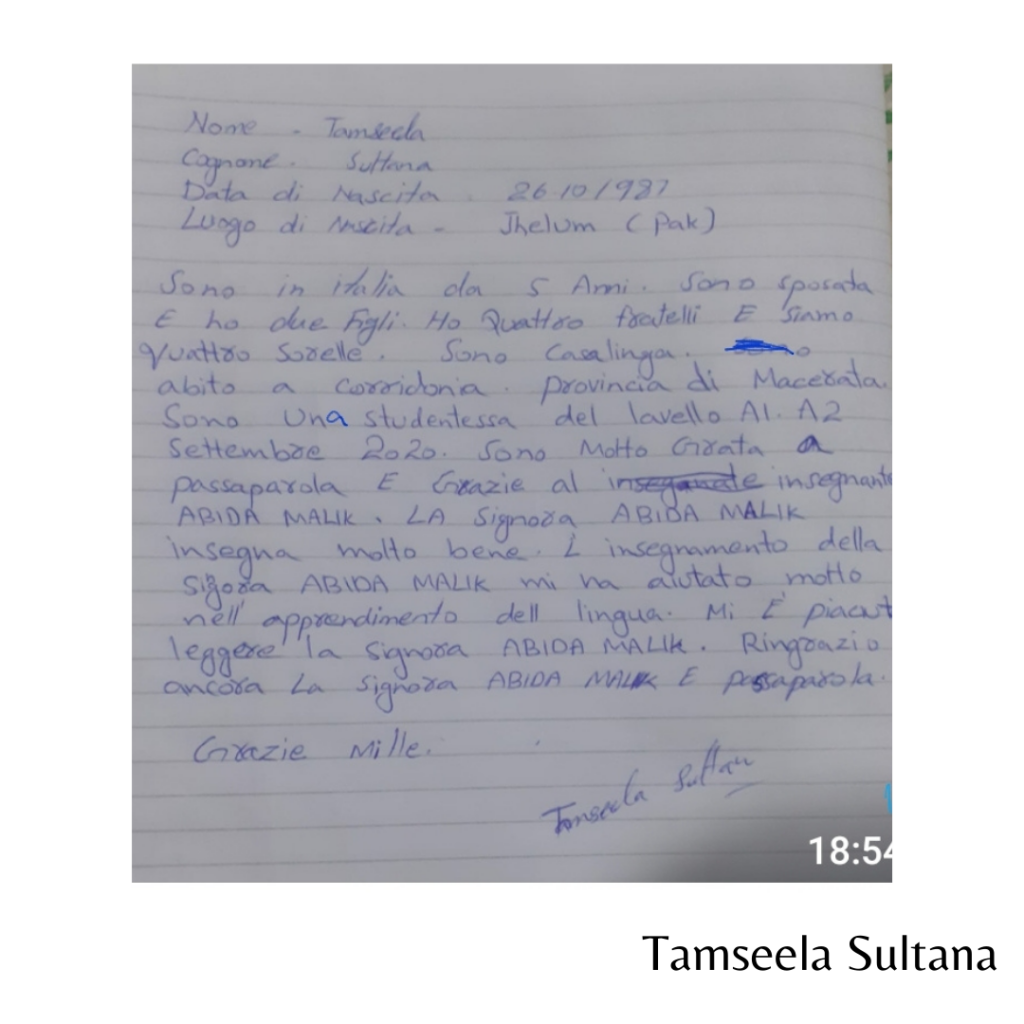 Nome - Tamseela
Cognone. Sultana
Data di Nascita. 26.10/1987
Luogo di Nascita - Jhelum (Pak)
Sono in italia da 5 Anni. Sono sposata
E ho due Figli. Ho Quattro fratelli E Siamo
Quattro Sorelle. Sono Casalinga.
abito a Corridonia. provincia di Macerata.
Sono una studentessa del lavello A1. A2
Settembre 2020. Sono Molto Grata a
passaparola E Grazie al insegnant
ABIDA MALIK. LA Signora ABIDA MALIK
insegna molto bene. L insegnamento della
Sigora ABIDA MALIK mi ha aiutato molto
nell' apprendimento dell lingua. Mi E' piacut
leggere la Signora ABIDA MALIK. Ringrazio
ancora La Signora ABIDA MALIK E passaparola.
Grazie Mille.
Tamseela Sultan
18:54
Tamseela Sultana